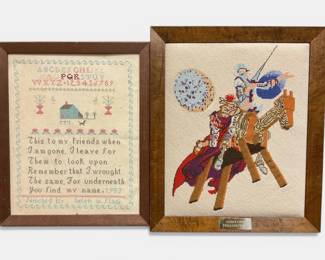 ABCDEFGHI
PQRSTUV
WXYZ 123456789
This to my friends when
I am gone, I leave for
Them to look upon
Remember that I wrought
The same, For underneath
You find my name. 1982
Stitched By